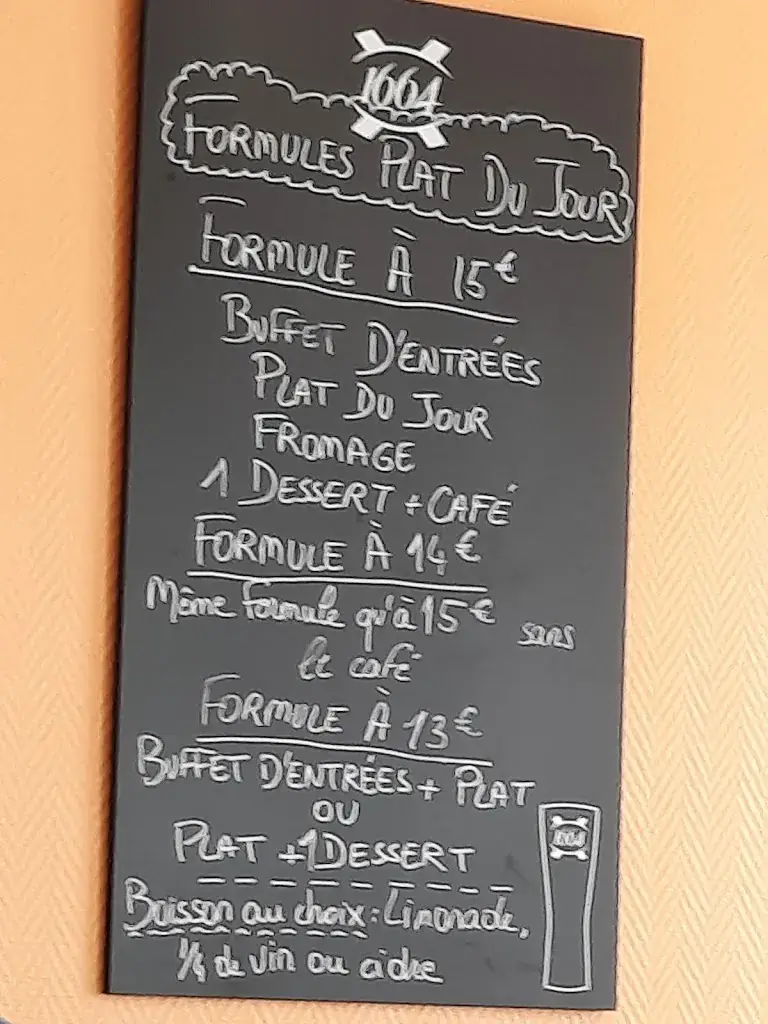 1664
FORMULES PLAT DU JOUR
FORMULE À 15€
BUFFET D'ENTRÉES
PLAT DU JOUR
FROMAGE
1 DESSERT + CAFÉ
FORMULE À 14€
Même formule qu'à 15€ sans
le café
FORMULE À 13€
BUFFET D'ENTRÉES + PLAT
OU
PLAT + 1 DESSERT
Boisson au choix : Limonade,
1/4 de vin ou cidre
1664